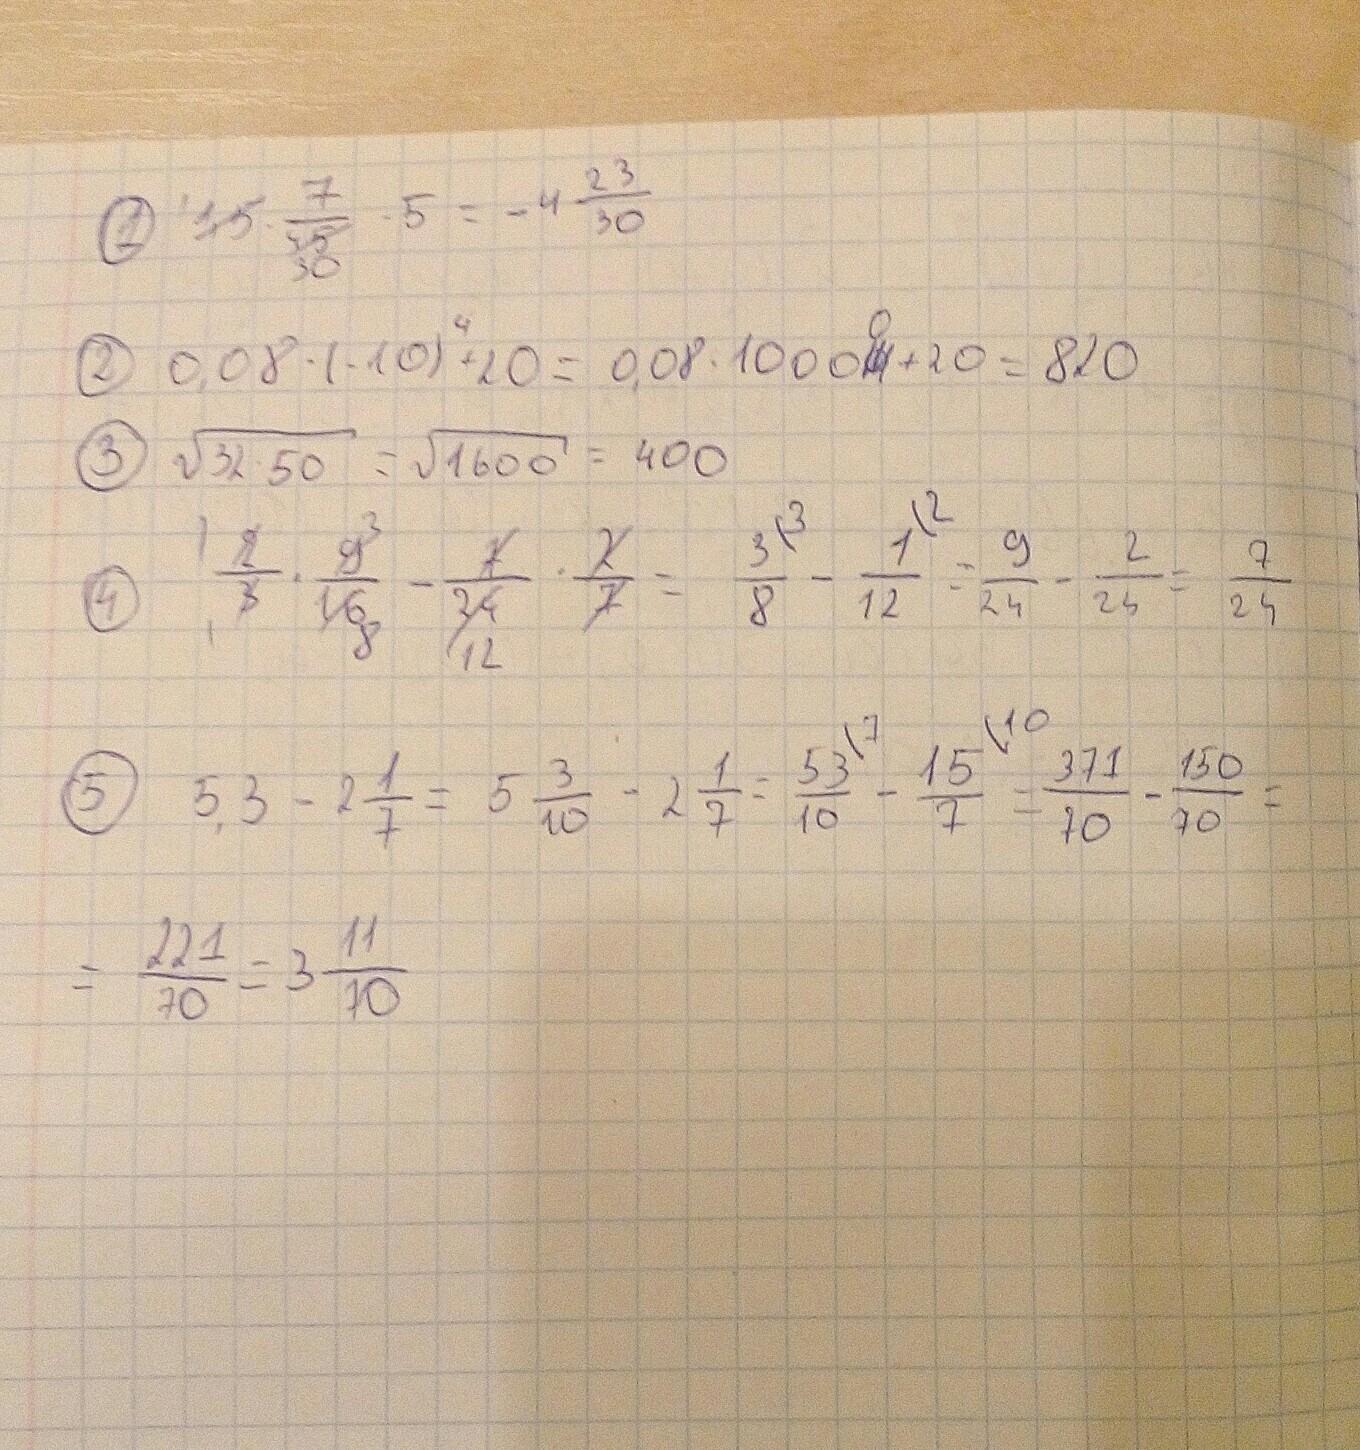 ① 1,5 · 7/45 30 · 5 = -4 23/30
② 0,08 · (-10)⁴ + 20 = 0,08 · 10000 + 20 = 820
③ √32·50 = √1600 = 400
④ 2/3 · 9/16 - 7/24 · 2/7 = 3/8 - 1/12 = 9/24 - 2/24 = 7/24
⑤ 5,3 - 2 1/7 = 5 3/10 - 2 1/7 = 53/10 - 15/7 = 371/70 - 150/70 =
= 221/70 = 3 11/70